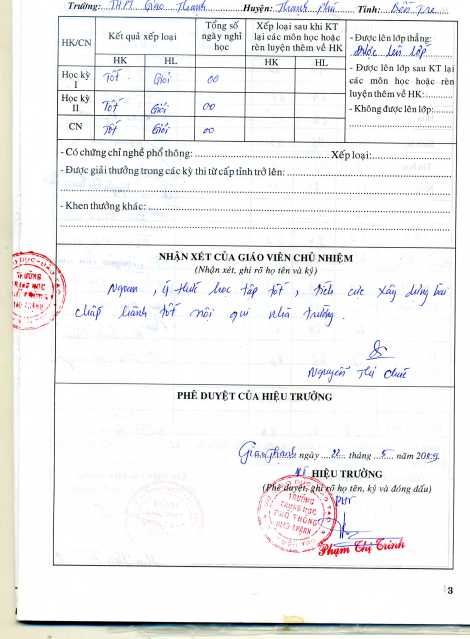 Trường: THPT Giao Thạnh Huyện: Thạnh Phú Tỉnh: Bến Tre
HK/CN
Kết quả xếp loại
Tổng số ngày nghỉ học
Xếp loại sau khi KT lại các môn học hoặc rèn luyện thêm về HK
HK HL
HK HL
Học kỳ I Tốt Giỏi 00
Học kỳ II Tốt Giỏi 00
CN Tốt Giỏi 00
- Được lên lớp thẳng:
Được lên lớp
- Được lên lớp sau KT
lại các môn học hoặc rèn
luyện thêm về HK:
- Không được lên lớp:
- Có chứng chỉ nghề phổ thông: Xếp loại:
- Được giải thưởng trong các kỳ thi từ cấp tỉnh trở lên:
- Khen thưởng khác:
NHẬN XÉT CỦA GIÁO VIÊN CHỦ NHIỆM
(Nhận xét, ghi rõ họ tên và ký)
Ngoan, ý thức học tập tốt, tích cực xây dựng bài
chấp hành tốt nội qui nhà trường.
Nguyễn Thị
PHÊ DUYỆT CỦA HIỆU TRƯỞNG
Giao Thạnh ngày 22 tháng 5 năm 2009
HIỆU TRƯỞNG
(Phê duyệt, ghi rõ họ tên, ký và đóng dấu)
TRƯỜNG
TRUNG HỌC
PHỔ THÔNG
GIAO THẠNH
Phạm Thị Trinh
3